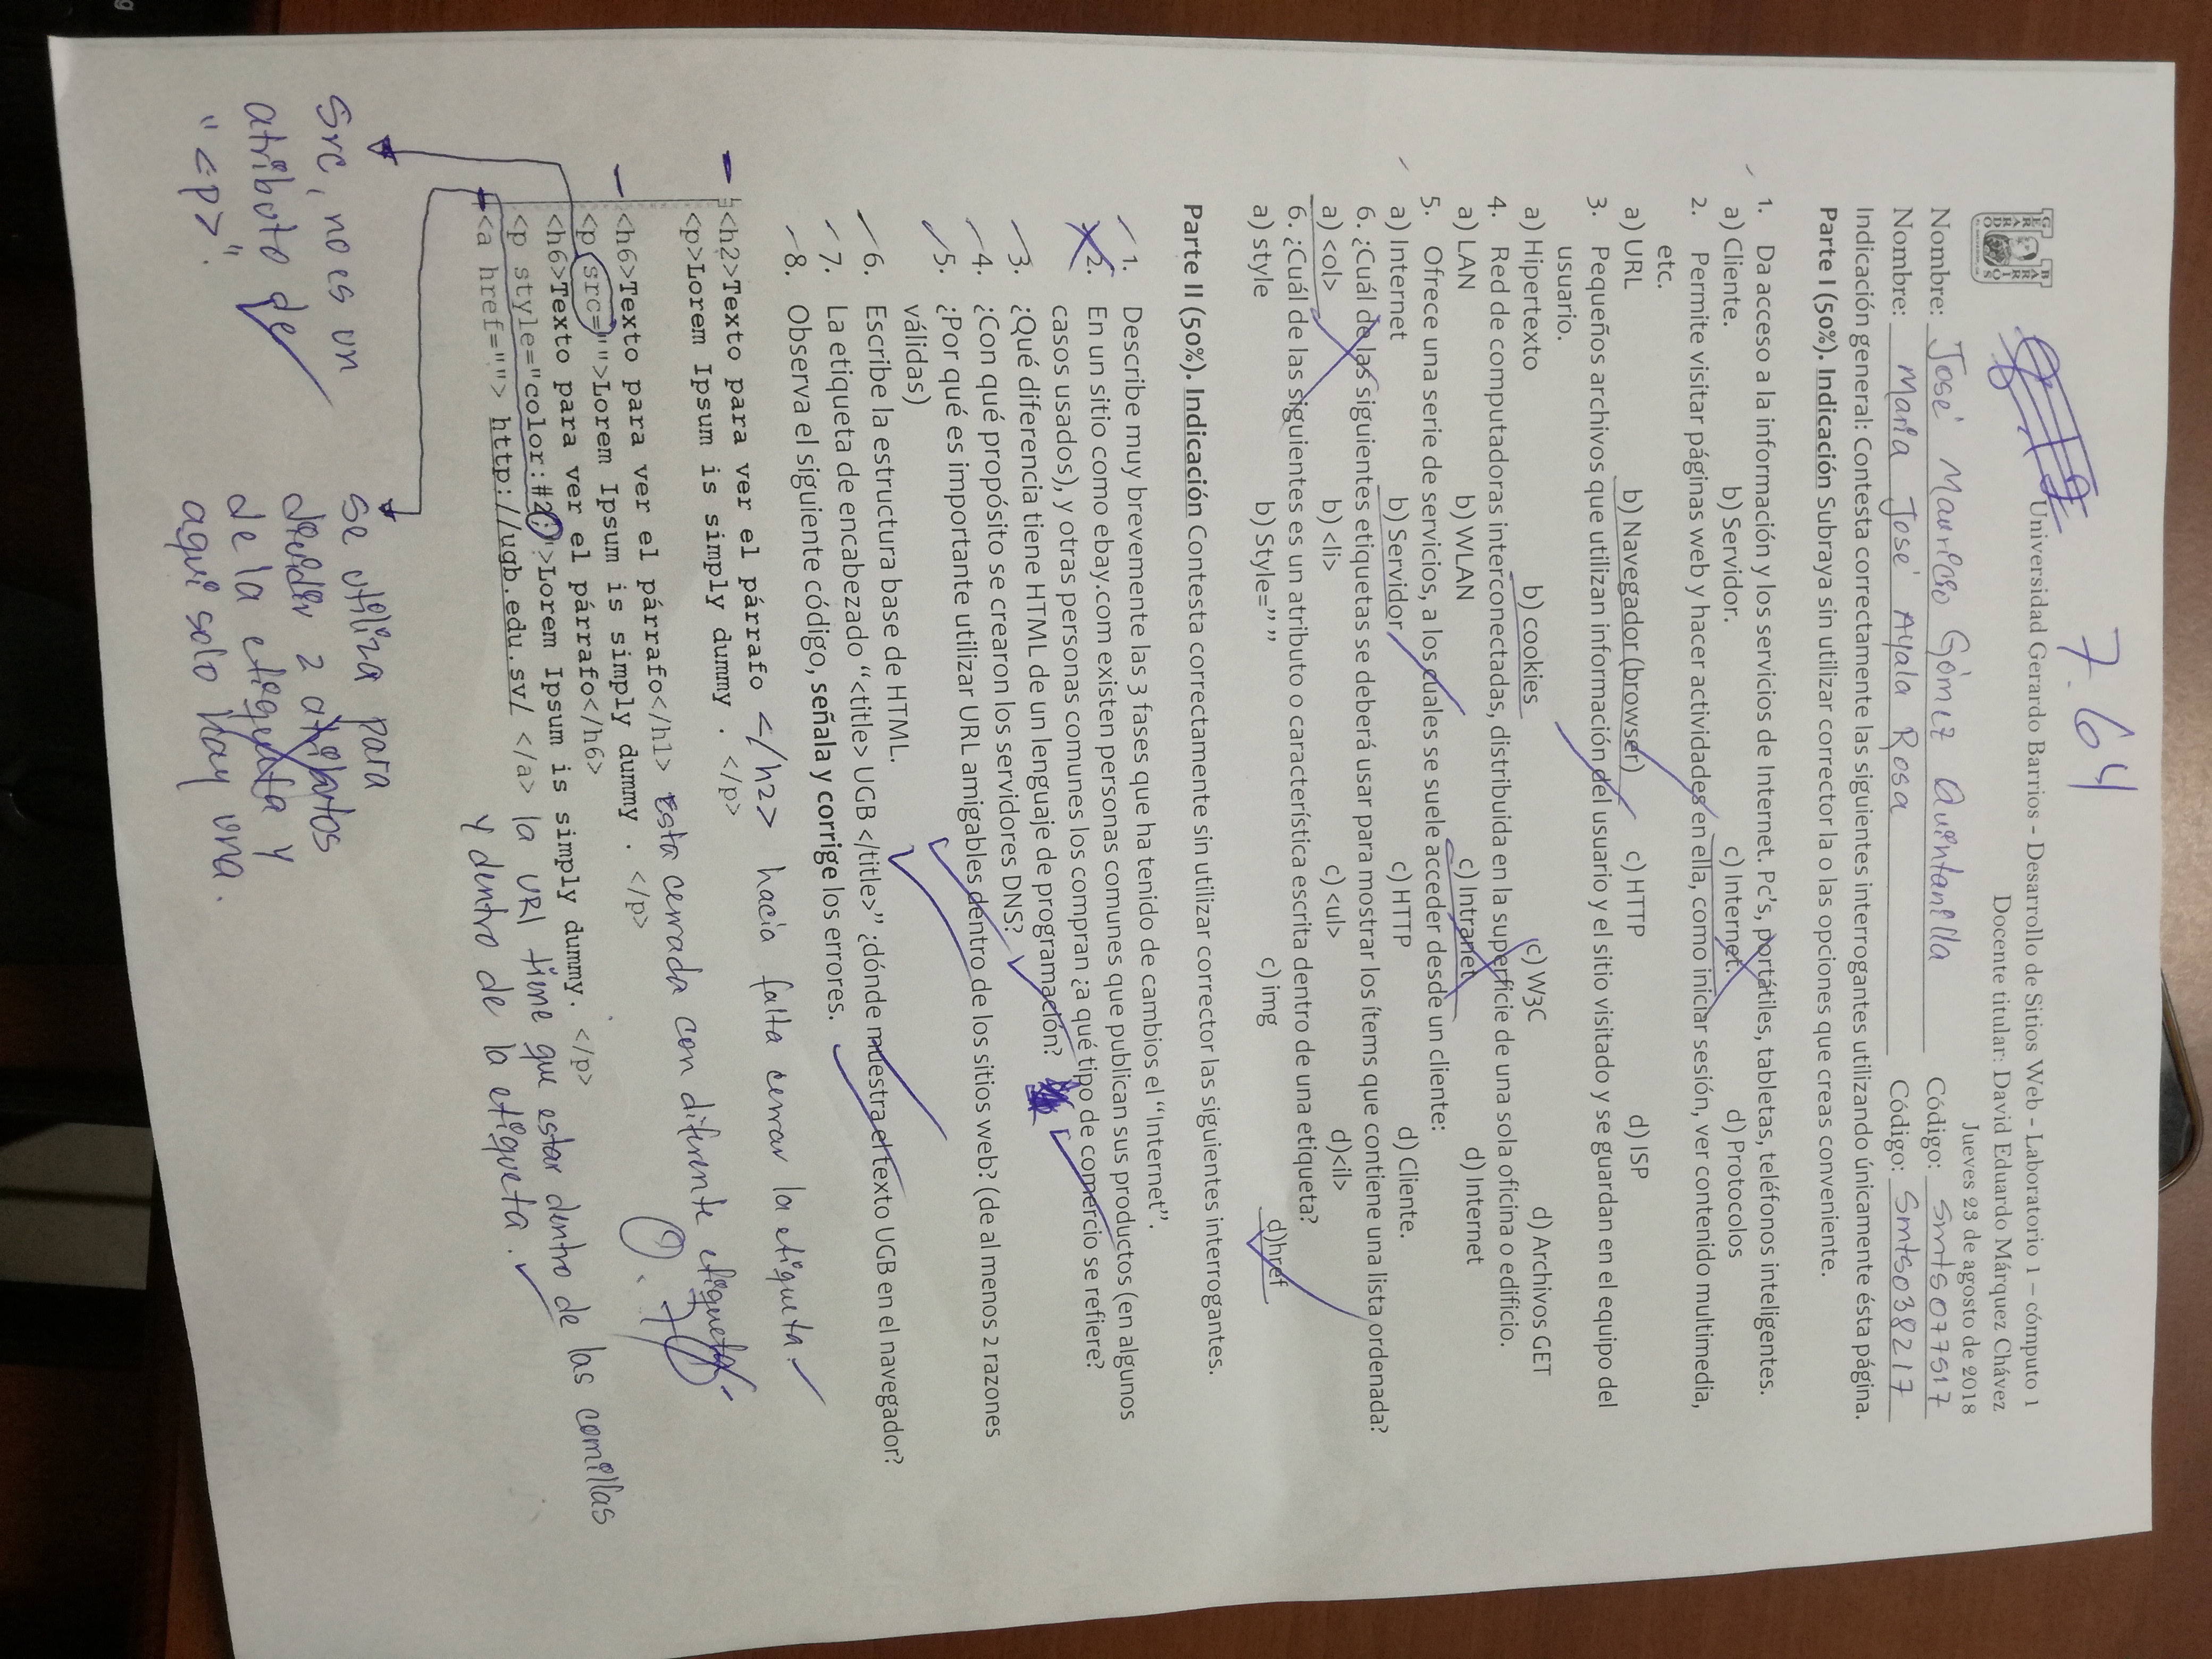 7.64
Universidad Gerardo Barrios - Desarrollo de Sitios Web - Laboratorio 1 – cómputo 1
Docente titular: David Eduardo Márquez Chávez
Jueves 23 de agosto de 2018
Nombre: José Mauricio Gómez Quintanilla Código: smts077517
Nombre: Maria José Ayala Rosa Código: Smts038217
Indicación general: Contesta correctamente las siguientes interrogantes utilizando únicamente ésta página.
Parte I (50%). Indicación Subraya sin utilizar corrector la o las opciones que creas conveniente.
1. Da acceso a la información y los servicios de Internet. Pc's, portátiles, tabletas, teléfonos inteligentes.
a) Cliente. b) Servidor. c) Internet. d) Protocolos
2. Permite visitar páginas web y hacer actividades en ella, como iniciar sesión, ver contenido multimedia,
etc.
a) URL b) Navegador (browser) c) HTTP d) ISP
3. Pequeños archivos que utilizan información del usuario y el sitio visitado y se guardan en el equipo del
usuario.
a) Hipertexto b) cookies c) W3C d) Archivos GET
4. Red de computadoras interconectadas, distribuida en la superficie de una sola oficina o edificio.
a) LAN b) WLAN c) Intranet d) Internet
5. Ofrece una serie de servicios, a los cuales se suele acceder desde un cliente:
a) Internet b) Servidor c) HTTP d) Cliente.
6. ¿Cuál de las siguientes etiquetas se deberá usar para mostrar los ítems que contiene una lista ordenada?
a) <ol> b) <li> c) <ul> d)<il>
6. ¿Cuál de las siguientes es un atributo o característica escrita dentro de una etiqueta?
a) style b) Style=" " c) img d)href
Parte II (50%). Indicación Contesta correctamente sin utilizar corrector las siguientes interrogantes.
1. Describe muy brevemente las 3 fases que ha tenido de cambios el "Internet".
2. En un sitio como ebay.com existen personas comunes que publican sus productos (en algunos
casos usados), y otras personas comunes los compran ¿a qué tipo de comercio se refiere?
3. ¿Qué diferencia tiene HTML de un lenguaje de programación?
4. ¿Con qué propósito se crearon los servidores DNS?
5. ¿Por qué es importante utilizar URL amigables dentro de los sitios web? (de al menos 2 razones
válidas)
6. Escribe la estructura base de HTML.
7. La etiqueta de encabezado "<title> UGB </title>" ¿dónde muestra el texto UGB en el navegador?
8. Observa el siguiente código, señala y corrige los errores.
<h2>Texto para ver el párrafo </h2> hacia falta cerrar la etiqueta.
<p>Lorem Ipsum is simply dummy . </p>
<h6>Texto para ver el párrafo</h1> esta cerrada con diferente etiqueta.
<p src="">Lorem Ipsum is simply dummy . </p>
0.7
<h6>Texto para ver el párrafo</h6>
<p style="color:#2;">Lorem Ipsum is simply dummy. </p>
<a href=""> http://ugb.edu.sv/ </a> la URl tiene que estar dentro de las comillas
y dentro de la etiqueta.
Src, no es un
atributo de
"<p>".
se utiliza para
2
de la etiqueta y
aqui solo hay una.